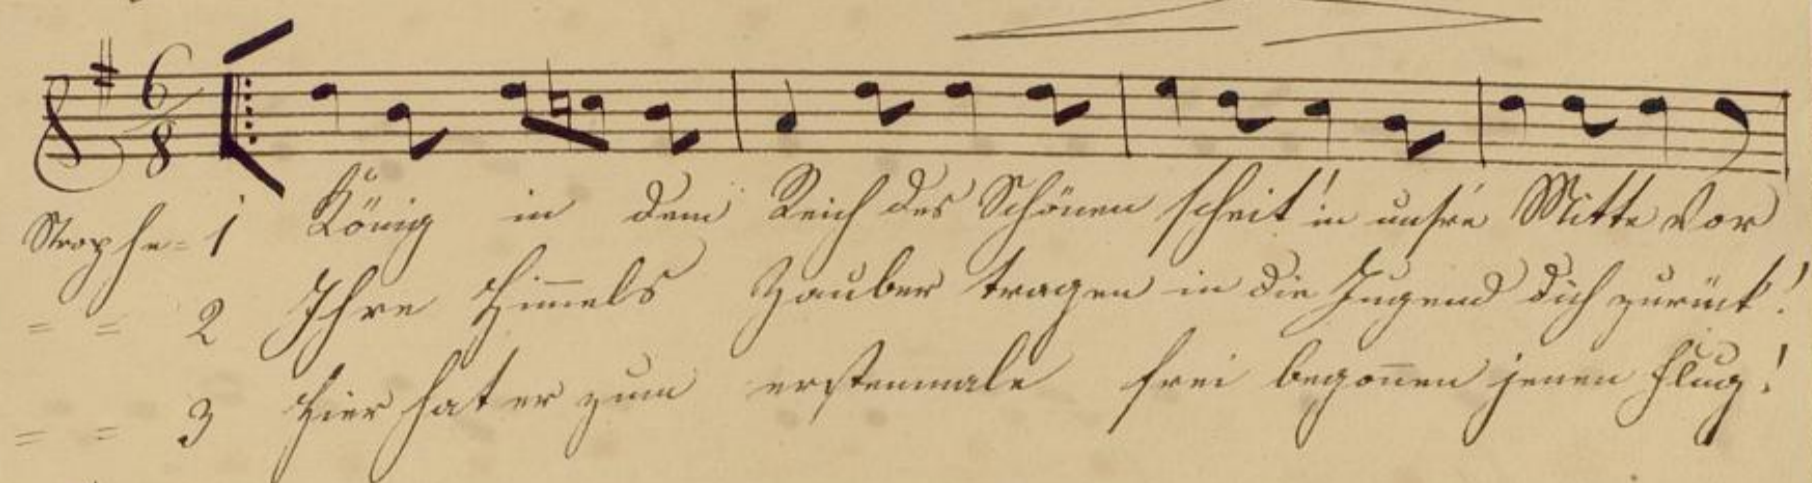 6
8
Strophe = 1 König in dem Reich des Schönen schreit' in unsre Mitte vor
= = 2 Ihre Him̅els Zauber tragen in die Jugend dich zurück!
= = 3 Hier hat er zum erstenmale frei begon̅en jenen Flug!